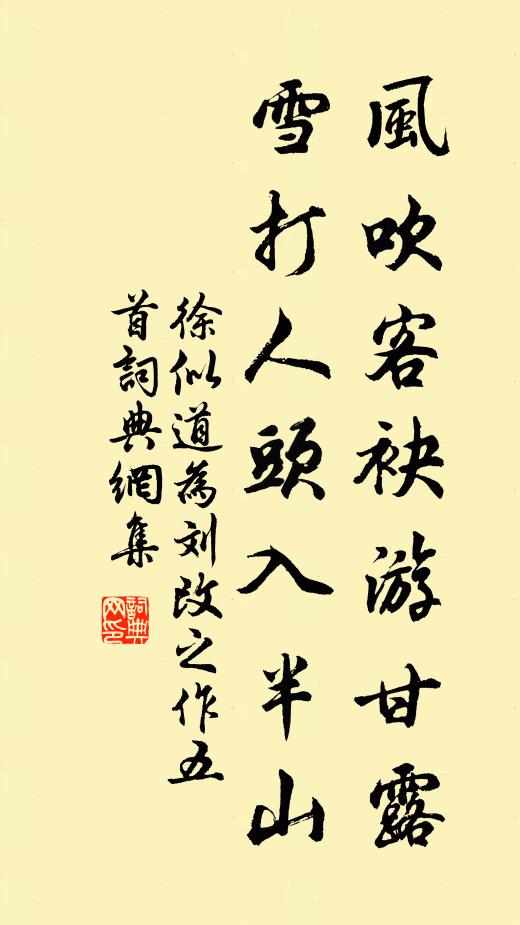 風吹客袂游甘露
雪打人頭入半山
徐似道為刘改之作五
首詞典網集
詞典
网印